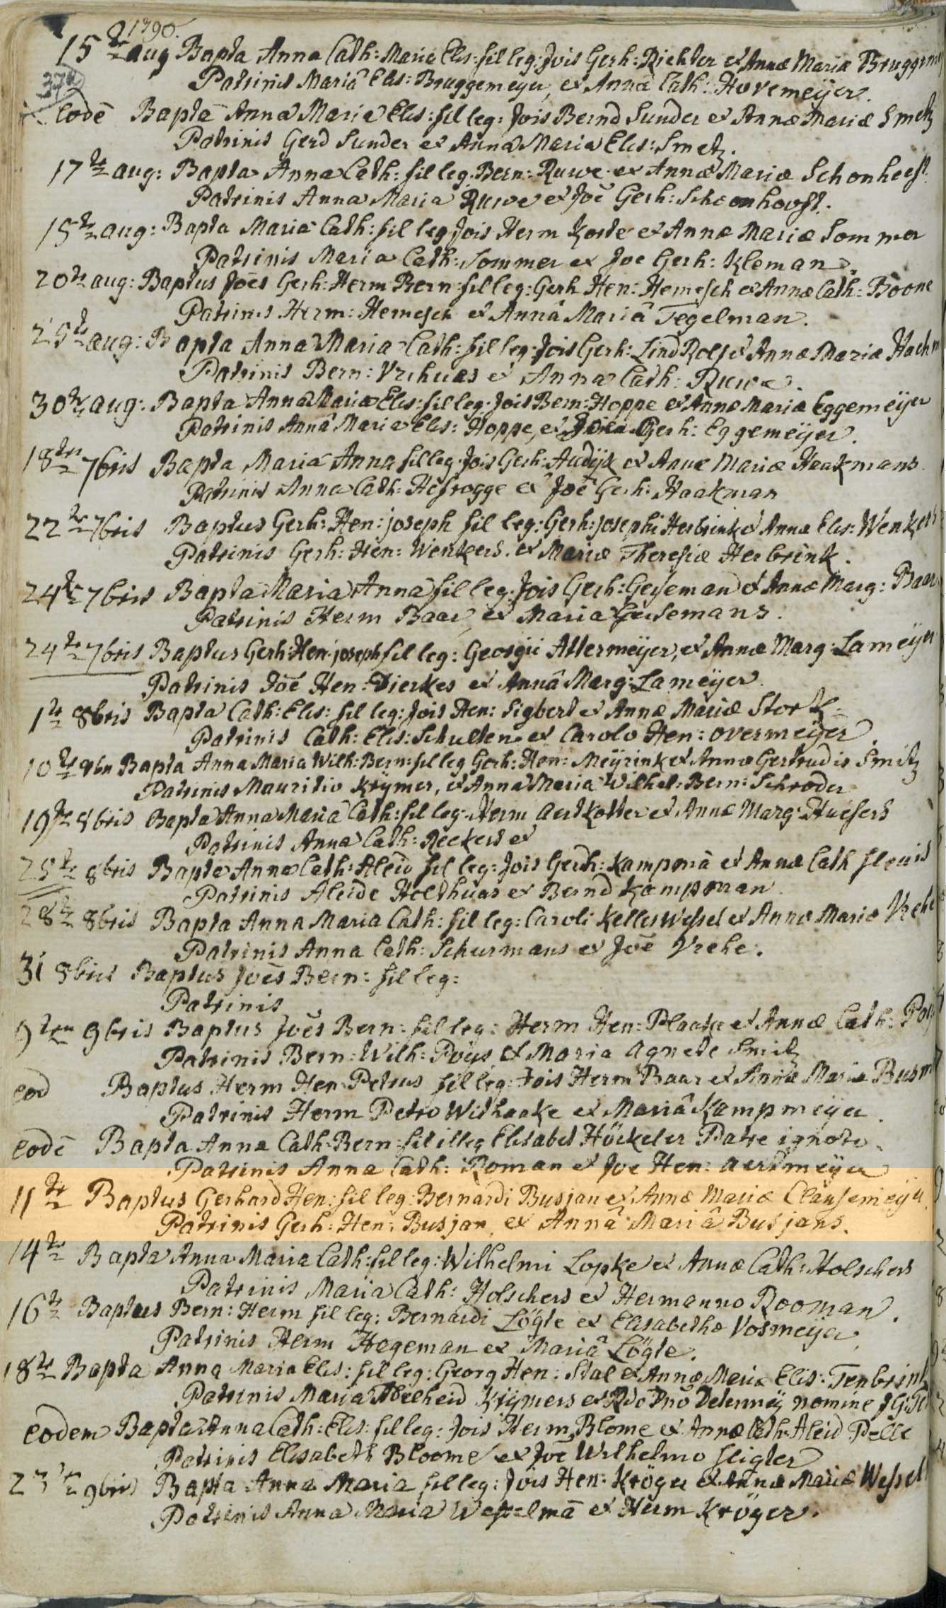 1790.
15ta aug Bapta Anna Cath: Maria Elis: fil leg: Jois Gerh: Richter et Annæ Maria Bruggem
Patrinis Mariâ Elis: Bruggemeyer, et Annâ Cath: Hovemeÿer.
Eodē Bapta Anna Maria Elis: fil leg: Jois Bernd Sunder et Annæ Mariæ Smetz
Patrinis Gerd Sunder et Anna Maria Elis: Smetz.
17ta aug: Bapta Anna Cath: fil leg: Bern: Ruwe et Annæ Mariæ Schonhoefft
Patrinis Anna Maria Ruwe et Joē Gerh: Schoonhovft.
18ta aug: Bapta Maria Cath: fil leg Jois Herm Koste et Annæ Mariæ Sommer
Patrinis Maria Cath: Sommer et Joe Gerh: Kleman.
20ta aug: Baptus Joēs Gerh: Herm Bern: fil leg: Gerh Hen: Hemesch et Annæ Cath: Boone
Patrinis Herm: Hemesch et Annâ Mariâ Tegelman.
29ta aug: Bapta Anna Maria Cath: fil leg: Jois Gerh: Lind Rolf et Annæ Mariæ
Patrinis Bern: Vrehuas et Anna Cath: Ruwe.
30ta aug: Bapta Anna Maria Elis: fil leg: Jois Bern: Hoppe et Annæ Mariæ Eggemeÿer
Patrinis Annâ Maria Elis: Hoppe, et Gerh: Eggemeÿer.
18ta 7bris Bapta Maria Anna fil leg: Jois Gerh: Audijk et Annæ Mariæ Haakmans
Patrinis Anna Cath: Hesrogge et Joē Gerh: Haakman
22ta 7bris Baptus Gerh: Hen: joseph fil leg: Gerh: josephi Herbrink et Annæ Elis: Wenkers
Patrinis Gerh: Hen: Wenkers. et Mariæ Theresiæ Herbrink.
24ta 7bris Bapta Maria Anna fil leg: Jois Gerh: Geseman et Annæ Marg: Baar
Patrinis Herm Baar, et Maria Gesemans.
24ta 7bris Baptus Gerh: Hen: joseph fil leg: Georgii Attermeÿer, et Annæ Marg: Lameÿer
Patrinis Joē Hen: Dierkes et Annâ Marg: Lameÿer.
1ta 8bris Bapta Cath: Elis: fil leg: Jois Hen: Sigbert et Annæ Mariæ Stortz
Patrinis Cath: Elis: Schulten et Carolo Hen: overmeÿer.
10ta 9br Bapta Anna Maria Wilh: Bern: fil leg Gerh: Hen: Meÿrink et Annæ Gertrudis Smitz
Patrinis Mauritio Krÿmer, et Anna Maria Wilhel: Bern: Schroder
19ta 8bris Bapta Anna Maria Cath: fil leg: Herm Aertkotter et Annæ Marg: Huesers
Patrinis Anna Cath: Reckers et
25ta 8bris Bapta Anna Cath: Aleid fil leg: Jois Gerh: Kampmā et Annæ Cath
Patrinis Aleide Holthuas et Bernd Kampman.
28ta 8bris Bapta Anna Maria Cath: fil leg: Caroli Kellerwessel et Annæ Mariæ Vrehe
Patrinis Anna Cath: Schurmans et Joē Vrehe.
31 8bris Baptus Joēs Bern: fil leg:
Patrinis
9ten 9bris Baptus Joēs Bern: fil leg: Herm Hen: Plaatje et Annæ Cath:
Patrinis Bern: Wilh: Poijs et Maria Agnete Smitz
eod Baptus Herm Hen Petrus fil leg: Jois Herm Baar et Annæ Maria
Patrinis Herm Petro Withaake et Mariâ Kampmeÿer.
Eodē Bapta Anna Cath: Bern: fil illeg Elisabet Höckeler Patre ignoto.
Patrinis Anna Cath: Roman et Joe Hen: aertmeÿer
11ta Baptus Gerhard Hen: fil leg: Bernardi Busjan et Annæ Mariæ Clausemeijer
Patrinis Gerh: Hen: Busjan, et Annâ Mariâ Busjans.
14ta Bapta Anna Maria Cath: fil leg: Wilhelmi Lopke et Annæ Cath: Holschers
Patrinis Maria Cath: Holschers et Hermanno Rooman.
16ta Baptus Bern: Herm fil leg: Bernardi Lögte et Elisabethæ Vosmeijer
Patrinis Herm Hogeman et Mariâ Lögte.
18ta Bapta Anna Maria Elis: fil leg: Georg Hen: Stal et Annæ Maria Elis: Tenbrink
Patrinis Maria Aleheid Krijmers et Rdo Dno nomine
eodem Bapta Anna Cath: Elis: fil leg: Jois Herm Blome et Annæ Cath: Aleid Pelle
Patrinis Elisabeth Bloome et Joe Wilhelmo Sligter
23ta 9bris Bapta Anna Maria fil leg: Jois Hen: Kröger et Annæ Mariæ Wessel
Patrinis Anna Maria Wesselmā et Herm Kröger.